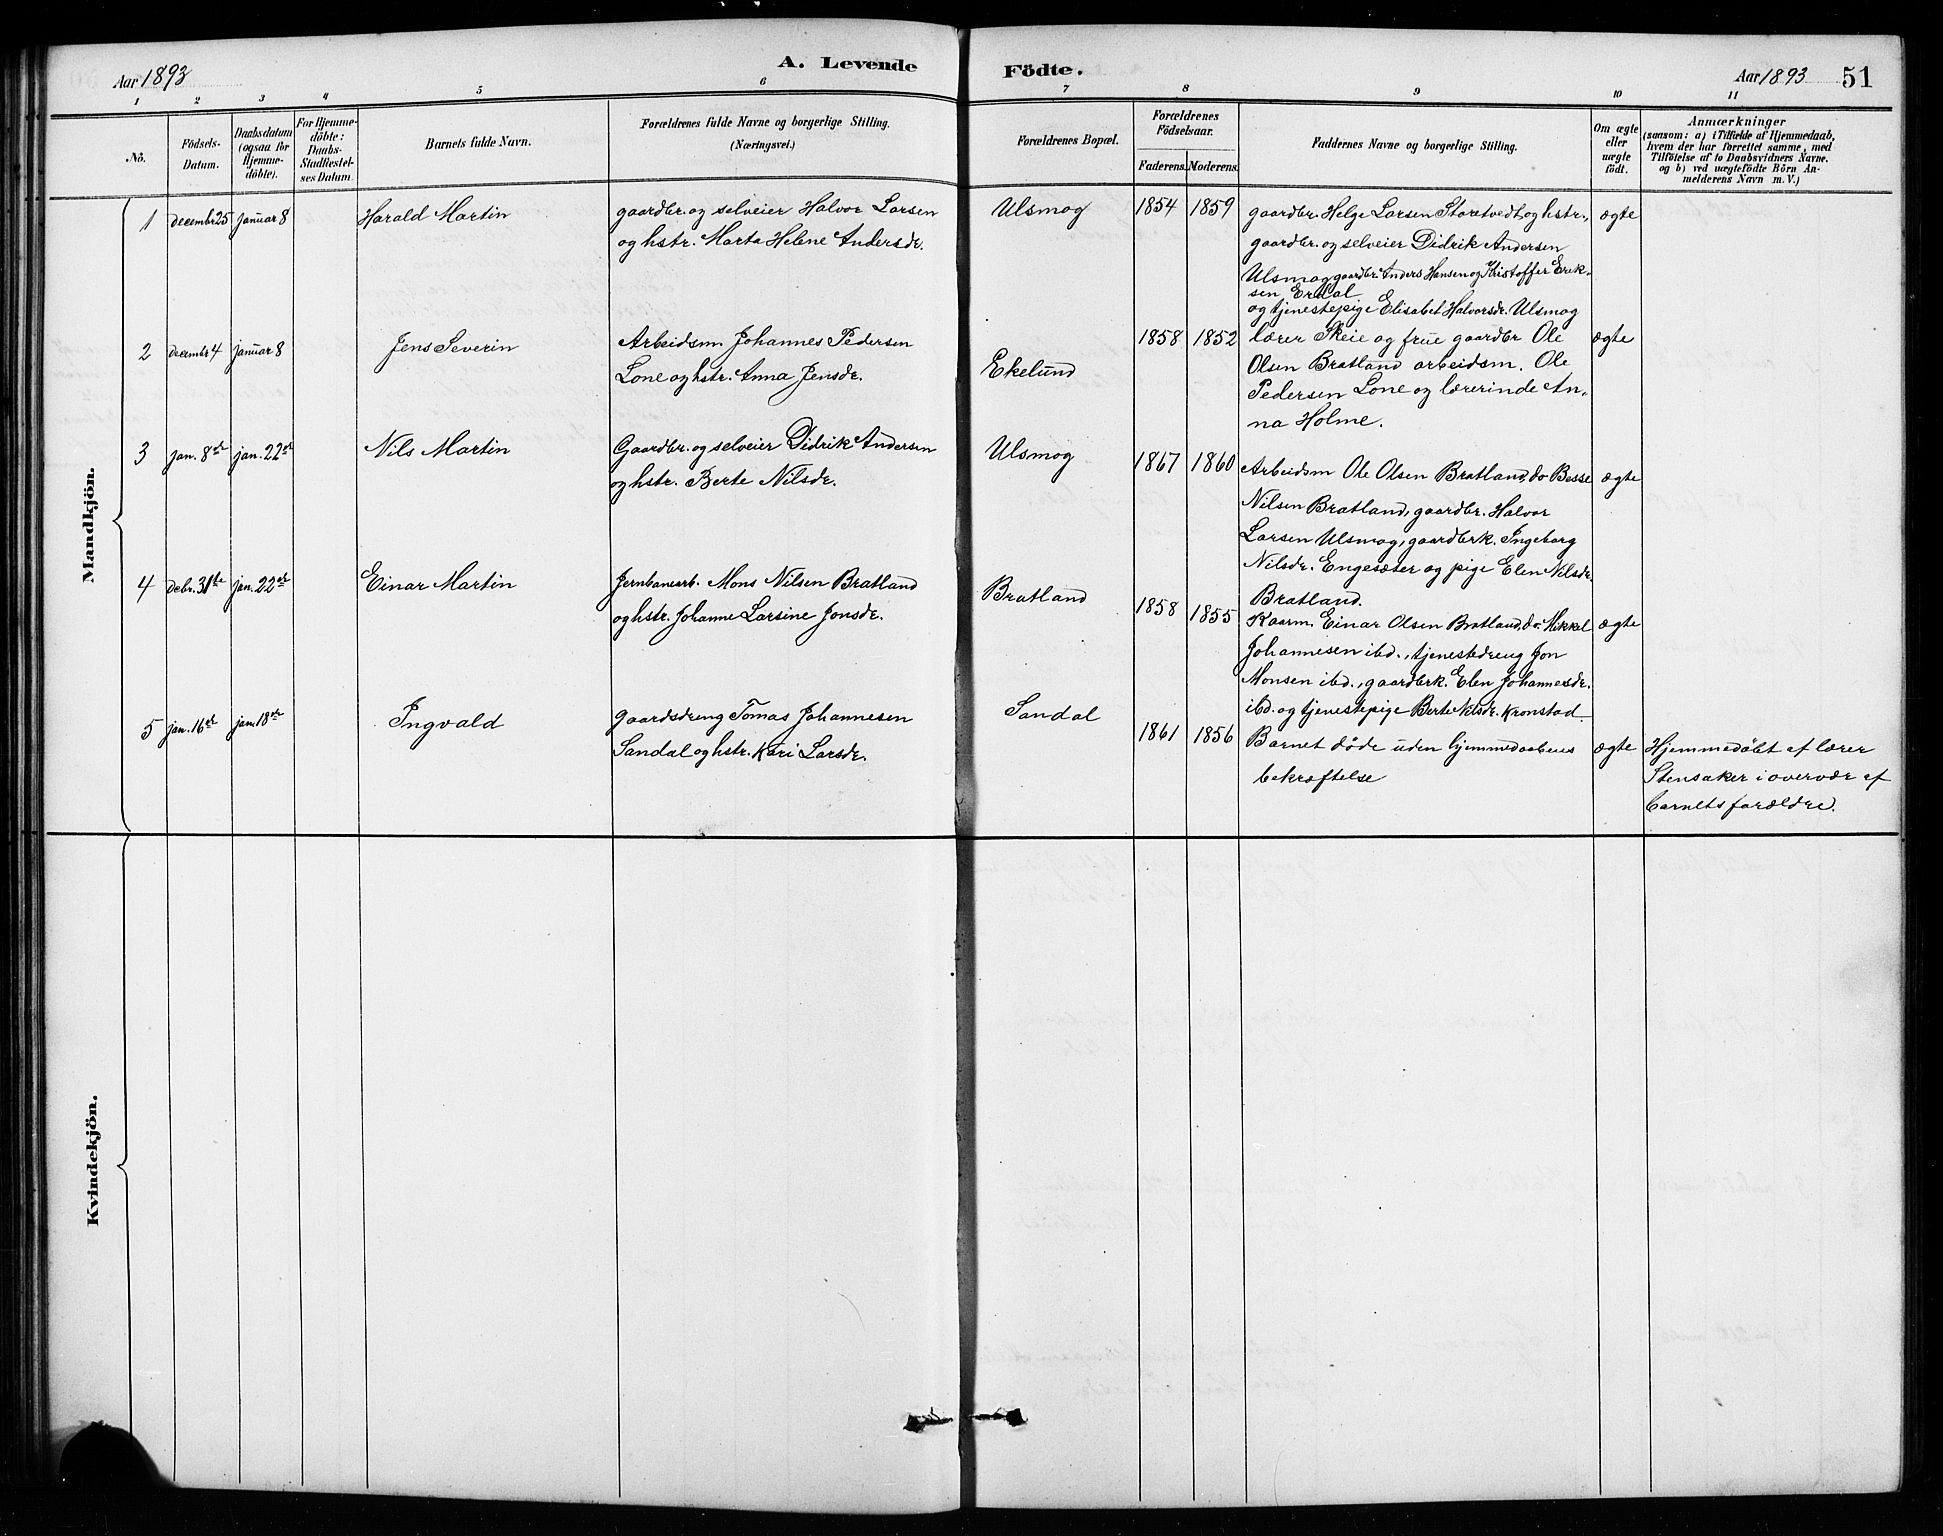 Aar 1893
A. Levende
Födte.
Aar 1893
51
1 2 3 4 5 6 7 8 9 10 11
No.
Födsels-
Datum.
Daabsdatum
(ogsaa for
Hjemme-
döbte).
For Hjemme-
döbte:
Daabs-
Stadfæstel-
ses Datum.
Barnets fulde Navn.
Forældrenes fulde Navne og borgerlige Stilling.
(Næringsvei.)
Forældrenes Bopæl.
Forældrenes
Födselsaar.
Faderens. Moderens.
Faddernes Navne og borgerlige Stilling.
Om ægte
eller
uægte
födt.
Anmærkninger
(saasom: a) i Tilfælde af Hjemmedaab,
hvem der har forrettet samme, med
Tilföielse af to Daabsvidners Navne.
og b) ved uægtefödte Börn An-
melderens Navn m. V.)
Mandkjön.
1 decembr 25 januar 8 Harald Martin
gaardbr. og selveier Halvor Larsen
og hstr. Marta Helene Andersdr.
Ulsmog 1854 1859
gaardbr. Helge Larsen Storetvedt, og hstr.,
gaardbr. og selveier Didrik Andersen
Ulsmog gaardbr. Anders Hansen og Kristoffer Erik-
sen Erdal
og tjenestepige Elisabet Halvorsdr. Ulsmog
ægte
2 decembr 4 januar 8 Jens Severin
Arbeidsm. Johannes Pedersen
Lone og hstr. Anna Jensdr.
Ekelund 1858 1852
lærer Skeie og frue gaardbr Ole
Olsen Bratland arbeidsm. Ole
Pedersen Lone og lærerinde An-
na Holme.
ægte
3 jan. 8de jan. 22de Nils Martin
Gaardbr. og selveier Didrik Andersen
og hstr. Berte Nilsdr.
Ulsmog 1867 1860
Arbeidsm Ole Olsen Bratland, do Besse
Nilsen Bratland, gaardbr. Halvor
Larsen Ulsmog, gaardbrk. Ingeborg
Nilsdr. Engesæter og pige Elen Nilsdr.
Bratland.
ægte
4 Debr. 31te jan. 22de Einar Martin
Jernbanearb. Mons Nilsen Bratland
og hstr. Johanne Larsine Jonsdr.
Bratland 1858 1855
Kaarm. Einar Olsen Bratland, do. Mikkel
Johannesen ibd., tjenestedreng Jon
Monsen ibd., gaardbrk. Elen Johannesdr.
ibd. og tjenestepige Berte Nilsdr. Kronstad
ægte
5 jan. 16de jan. 18de Ingvald
gaardsdreng Tomas Johannesen
Sandal og hstr. Kari Larsdr.
Sandal 1861 1856
Barnet døde uden hjemmedaabens
bekræftelse
ægte
Hjemmedøbt af lærer
Stensaker i overvær af
barnets forældre.
Kvindekjön.